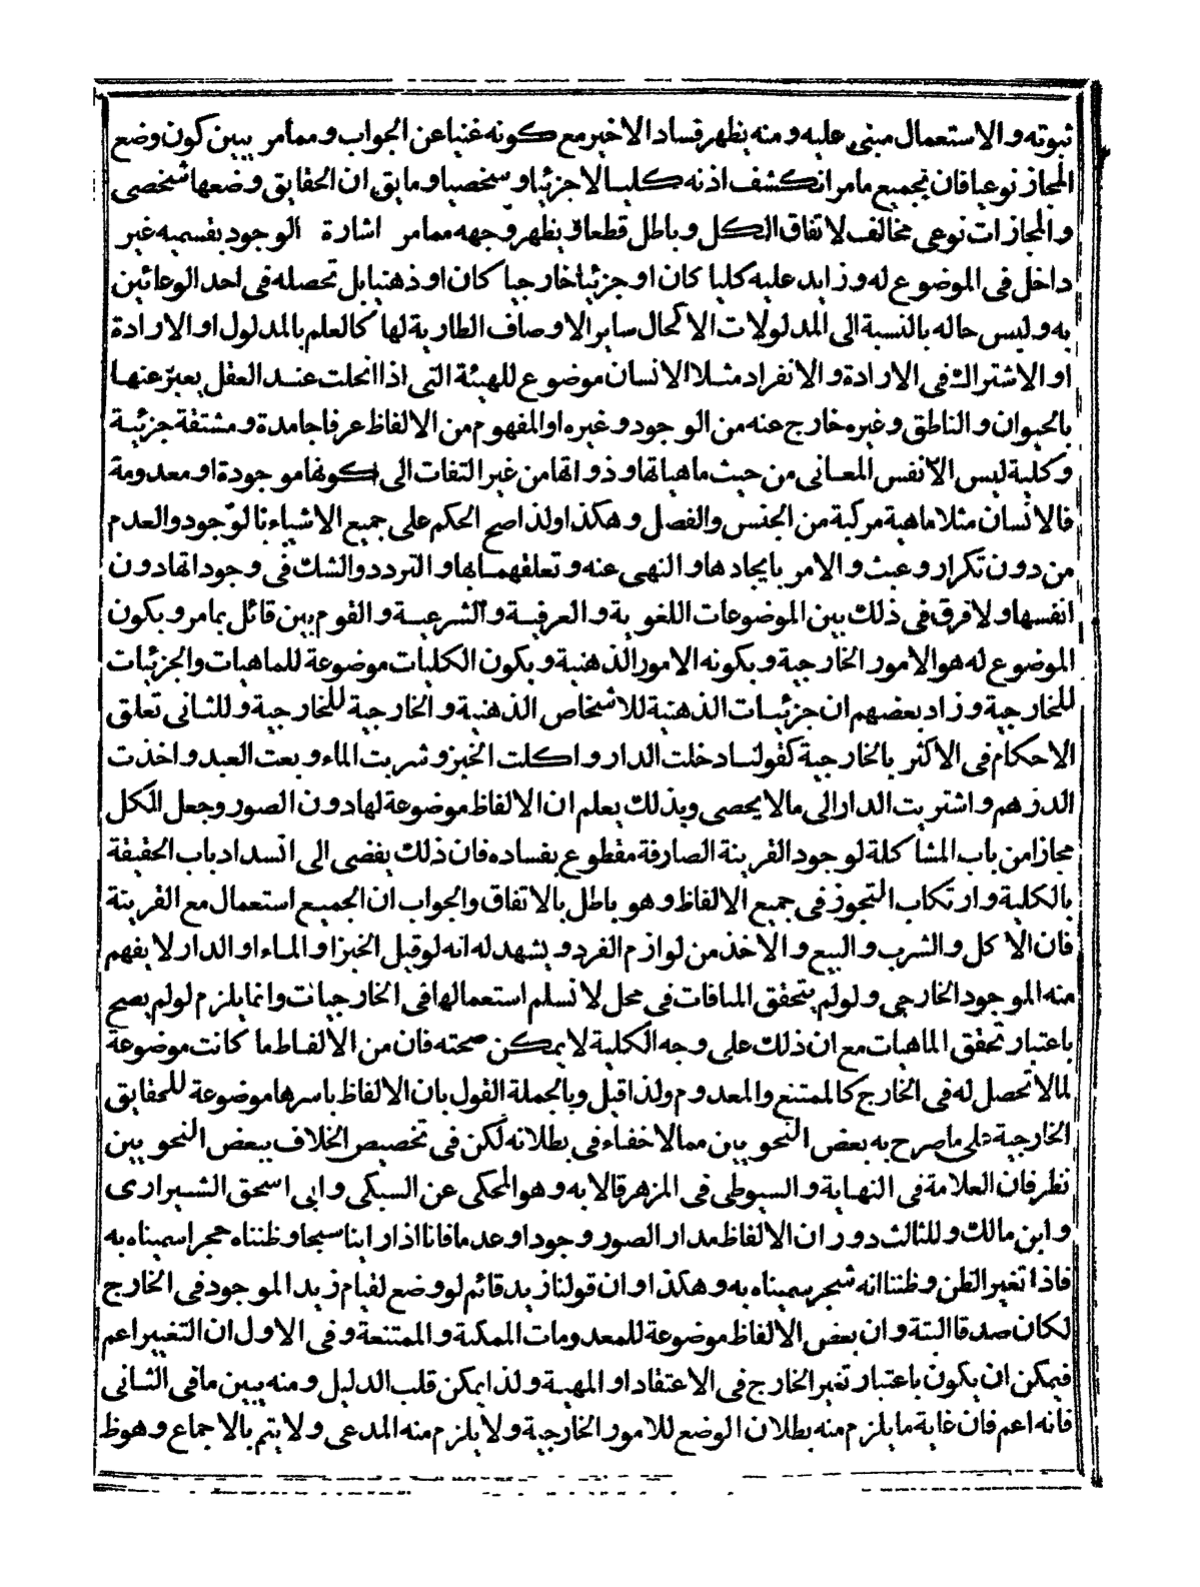 ثبوته والاستعمال مبنى عليه ومنه يظهر فساد الاخير مع كونه غنيا عن الجواب ومما مر يبين كون وضع
المجاز نوعيا فان بجميع ما مر انكشف اذنه كليا لا جزئيا وشخصيا وما يق ان الحقايق وضعها شخصى
والمجازات نوعى مخالف لاتفاق الكل وباطل قطعا ويظهر وجهه مما مر اشارة الوجود بقسميه غير
داخل فى الموضوع له وزايد عليه كليا كان او جزئيا خارجيا كان او ذهنيا بل تحصله فى احد الوعائين
به وليس حاله بالنسبة الى المدلولات الا كحال ساير الاوصاف الطارية لها كالعلم بالمدلول او الارادة
او الاشتراك فى الارادة والانفراد مثلا الانسان موضوع للهيئة التى اذا انحلت عند العقل يعبر عنها
بالحيوان والناطق وغيره خارج عنه من الوجود وغيره او المفهوم من الالفاظ عرفا جامدة ومشتقة جزئية
وكلية ليس الا نفس المعانى من حيث ماهياتها وذواتها من غير التفات الى كونها موجودة او معدومة
فالانسان مثلا ماهية مركبة من الجنس والفصل وهكذا ولذا صح الحكم على جميع الاشياء بالوجود والعدم
من دون تكرار وعبث والامر بايجادها والنهى عنه وتعلقهما بها والتردد والشك فى وجوداتها دون
انفسها ولا فرق فى ذلك بين الموضوعات اللغوية والعرفية والشرعية والقوم بين قائل بما مر وبكون
الموضوع له هو الامور الخارجية وبكونه الامور الذهنية وبكون الكليات موضوعة للماهيات والجزئيات
للخارجية وزاد بعضهم ان جزئيات الذهنية للاشخاص الذهنية والخارجية للخارجية وللثانى تعلق
الاحكام فى الاكثر بالخارجية كقولنا دخلت الدار واكلت الخبز وشربت الماء وبعت العبد واخذت
الدرهم واشتريت الدار الى ما لا يحصى وبذلك يعلم ان الالفاظ موضوعة لها دون الصور وجعل الكل
مجازا من باب المشاكلة لوجود القرينة الصارفة مقطوع بفساده فان ذلك يفضى الى انسداد باب الحقيقة
بالكلية وارتكاب التجوز فى جميع الالفاظ وهو باطل بالاتفاق والجواب ان الجميع استعمال مع القرينة
فان الاكل والشرب والبيع والاخذ من لوازم الفرد ويشهد له انه لو قيل الخبز او الماء او الدار لا يفهم
منه الموجود الخارجى ولو لم يتحقق المنافات فى محل لا نسلم استعمالها فى الخارجيات وانما يلزم لو لم يصح
باعتبار تحقق الماهيات مع ان ذلك على وجه الكلية لا يمكن صحته فان من الالفاظ ما كانت موضوعة
لما لا تحصل له فى الخارج كالممتنع والمعدوم ولذا قيل وبالجملة القول بان الالفاظ باسرها موضوعة للحقايق
الخارجية على ما صرح به بعض النحويين مما لا خفاء فى بطلانه لكن فى تخصيص الخلاف ببعض النحويين
نظر فان العلامة فى النهاية والسيوطى فى المزهر قالا به وهو المحكى عن السبكى وابى اسحق الشيرازى
وابن مالك وللثالث دوران الالفاظ مدار الصور وجودا وعدما فانا اذا راينا شبحا وظنناه حجرا سميناه به
فاذا تغير الظن وظننا انه شجر سميناه به وهكذا وان قولنا زيد قائم لو وضع لقيام زيد الموجود فى الخارج
لكان صدقا البتة وان بعض الالفاظ موضوعة للمعدومات الممكنة والممتنعة وفى الاول ان التغيير اعم
فيمكن ان يكون باعتبار تغير الخارج فى الاعتقاد او المهية ولذا يمكن قلب الدليل ومنه يبين ما فى الثانى
فانه اعم فان غاية ما يلزم منه بطلان الوضع للامور الخارجية ولا يلزم منه المدعى ولا يتم بالاجماع وهو ظ